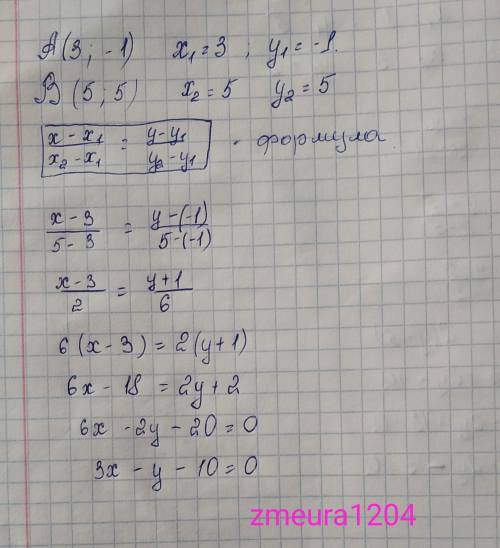 A(3; -1) x₁=3 ; y₁=-1.
B(5; 5) x₂=5 y₂=5
(x-x₁)/(x₂-x₁) = (y-y₁)/(y₂-y₁) - формула
(x-3)/(5-3) = (y-(-1))/(5-(-1))
(x-3)/2 = (y+1)/6
6(x-3)=2(y+1)
6x-18=2y+2
6x-2y-20=0
3x-y-10=0
zmeura1204